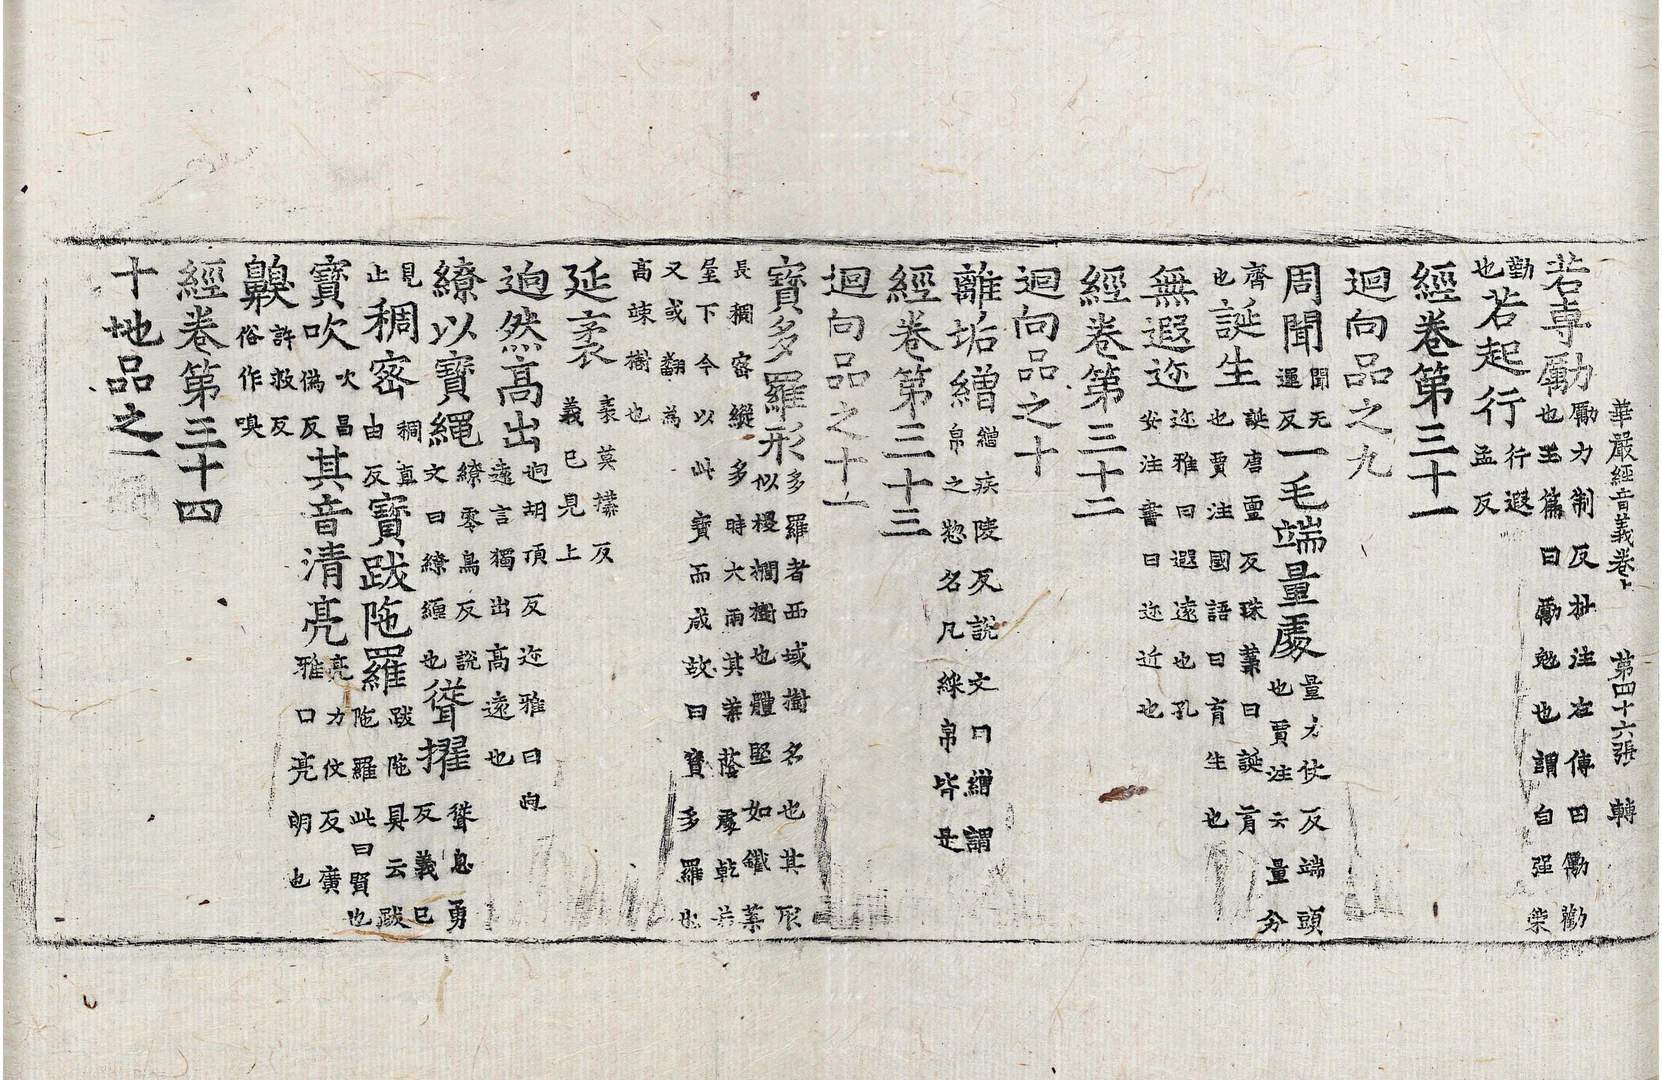 華嚴經音義卷上 第四十六張 轉
若專勵勵力制反杜注左傳曰勵勸
也玉篇曰勵勉也謂自强柴
勸也若起行行遐孟反
經卷第三十一
迴向品之九
周聞聞无運反一毛端量處量力仗反端頭
也賈注云量分
齊也誕生誕唐亶反珠叢曰誕育
也賈注國語曰育生也
無遐迩迩雅曰遐遠也孔
安注書曰迩近也
經卷第三十二
迴向品之十
離垢繒繒疾陵反說文曰繒謂
帛之惣名凡綵帛皆是
經卷第三十三
迴向品之十一
寶多羅形多羅者西域樹名也其形
似椶櫚樹也體堅如鐵葉
長稠密縱多時大雨其葉蔭處乾若
屋下今以此寶而成故曰寶多羅也
又或翻為
高竦樹也
延袤袤莫反
義已見上
逈然高出逈胡頂反迩雅曰逈
遠言獨出高遠也
繚以寶繩繚零鳥反說文曰繚纏也聳擢聳息勇反義已
見止稠密稠直由反寶跋陁羅跋陁具云跋陁羅此曰賢也
寶吹吹昌偽反其音清亮亮力仗反廣雅曰亮明也
齅許救反
俗作嗅
經卷第三十四
十地品之一